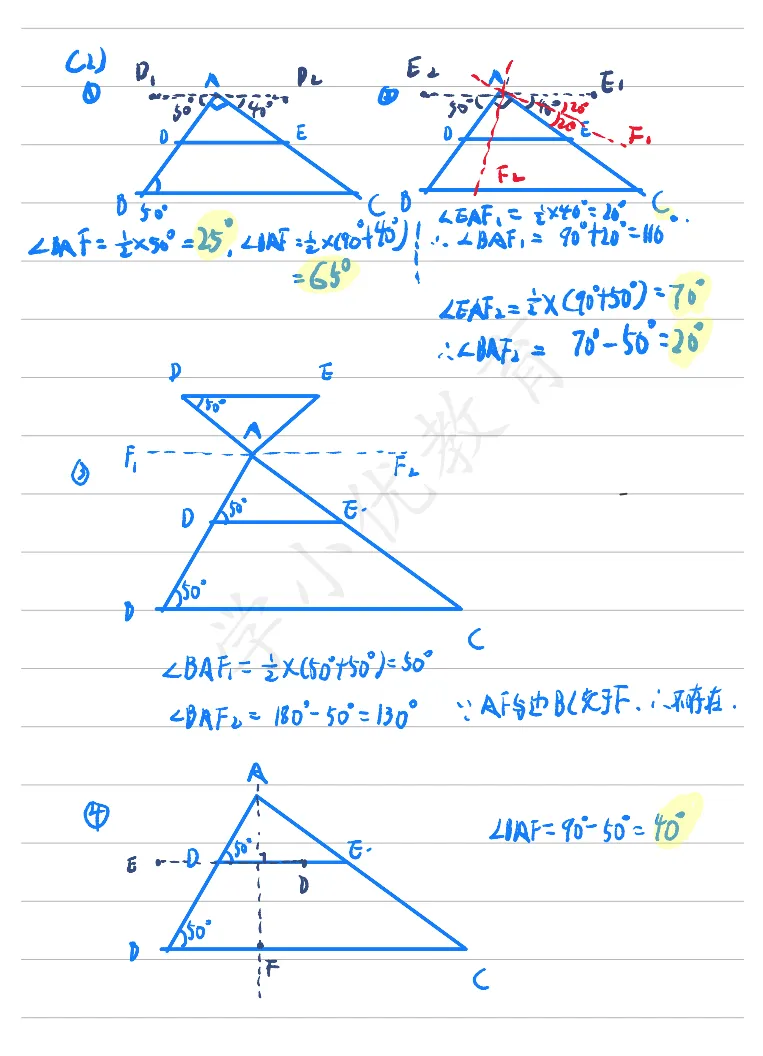 (2)
① D₁ A D₂
50° 40°
D E
B 50° C
∠BAF=½×50°=25°, ∠BAF=½×(90°+40°)
=65°
② E₂ A E₁
50° 40° 20°
20°
D E F₁
F₂
B C
∠EAF₁=½×40°=20°.
∴∠BAF₁=90°+20°=110°.
∠EAF₂=½×(90°+50°)=70°
∴∠BAF₂=70°-50°=20°
D E
50°
A
F₁ F₂
③
D 50° E
B 50°
C
∠BAF₁=½×(50°+50°)=50°
∠BAF₂=180°-50°=130° ∵AF与边BC交于F.∴不存在.
A
④
∠BAF=90°-50°=40°
E D 50° E
D
B 50°
F C
学小优教育